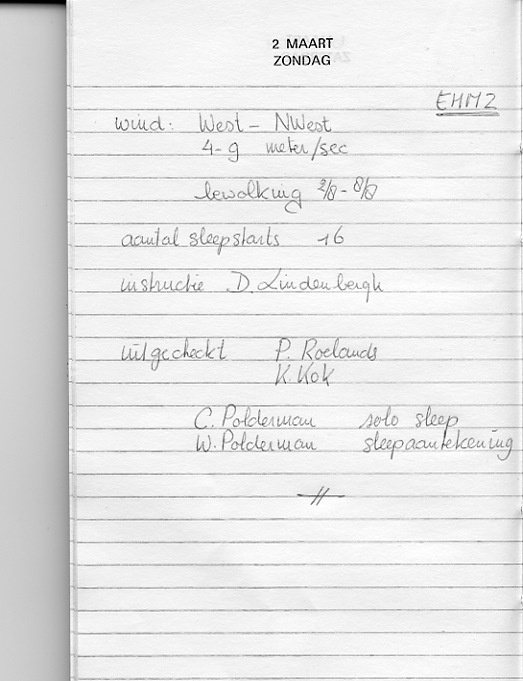 2 MAART
ZONDAG
EHMZ
wind: West - NWest
4-9 meter/sec
bewolking 2/8 - 8/8
aantal sleepstarts 16
instructie D. Lindenbergh
uitgecheckt P. Roelands
K. Kok
C. Polderman solo sleep
W. Polderman sleepaantekening